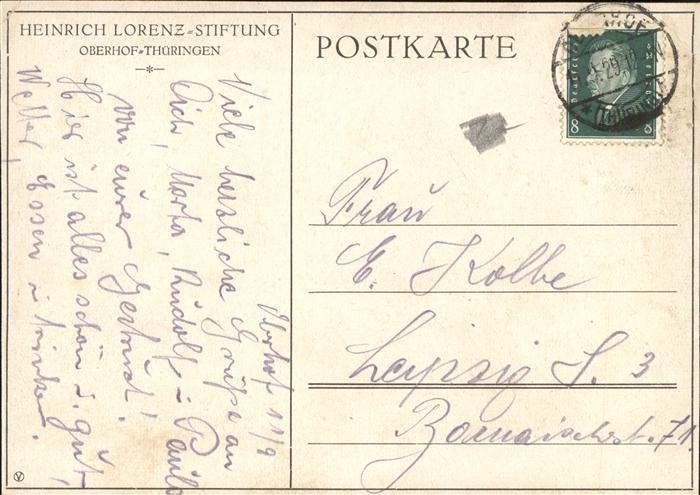 HEINRICH LORENZ=STIFTUNG
OBERHOF=THÜRINGEN
POSTKARTE
8 8
Oberhof 11/9
Viele herzliche Grüße an
Dich, Marta, Rudolf u Paula
von eurer Gertrud!
Hier ist alles schön u. gut,
Wetter, Essen u Trinken.
Frau
E. Kolbe
Leipzig S. 3
Bornaischestr. 71.